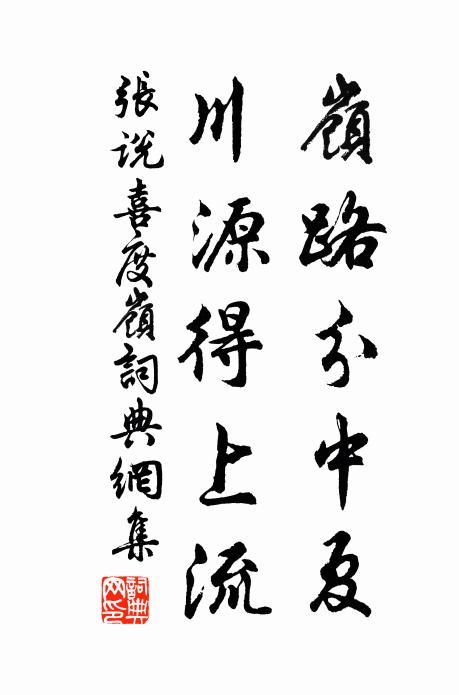 嶺路分中夏
川源得上流
張說喜度嶺詞典網集
詞典
网印